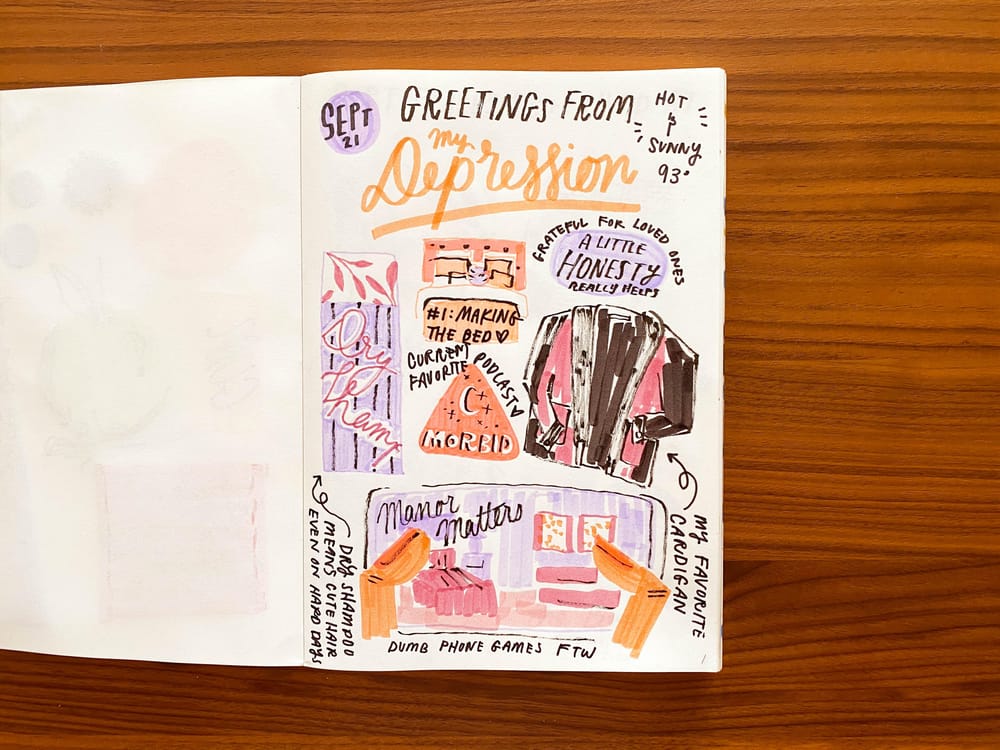 SEPT
21
GREETINGS FROM
my
Depression
HOT
&
SUNNY
93°
GRATEFUL FOR LOVED ONES
A LITTLE
HONESTY
REALLY HELPS
#1: MAKING
THE BED
CURRENT
FAVORITE PODCAST
MORBID
Dry
Shamp
DRY SHAMPOO
MEANS CUTE HAIR
EVEN ON HARD DAYS
MY FAVORITE
CARDIGAN
Manor
Matters
DUMB PHONE GAMES FTW